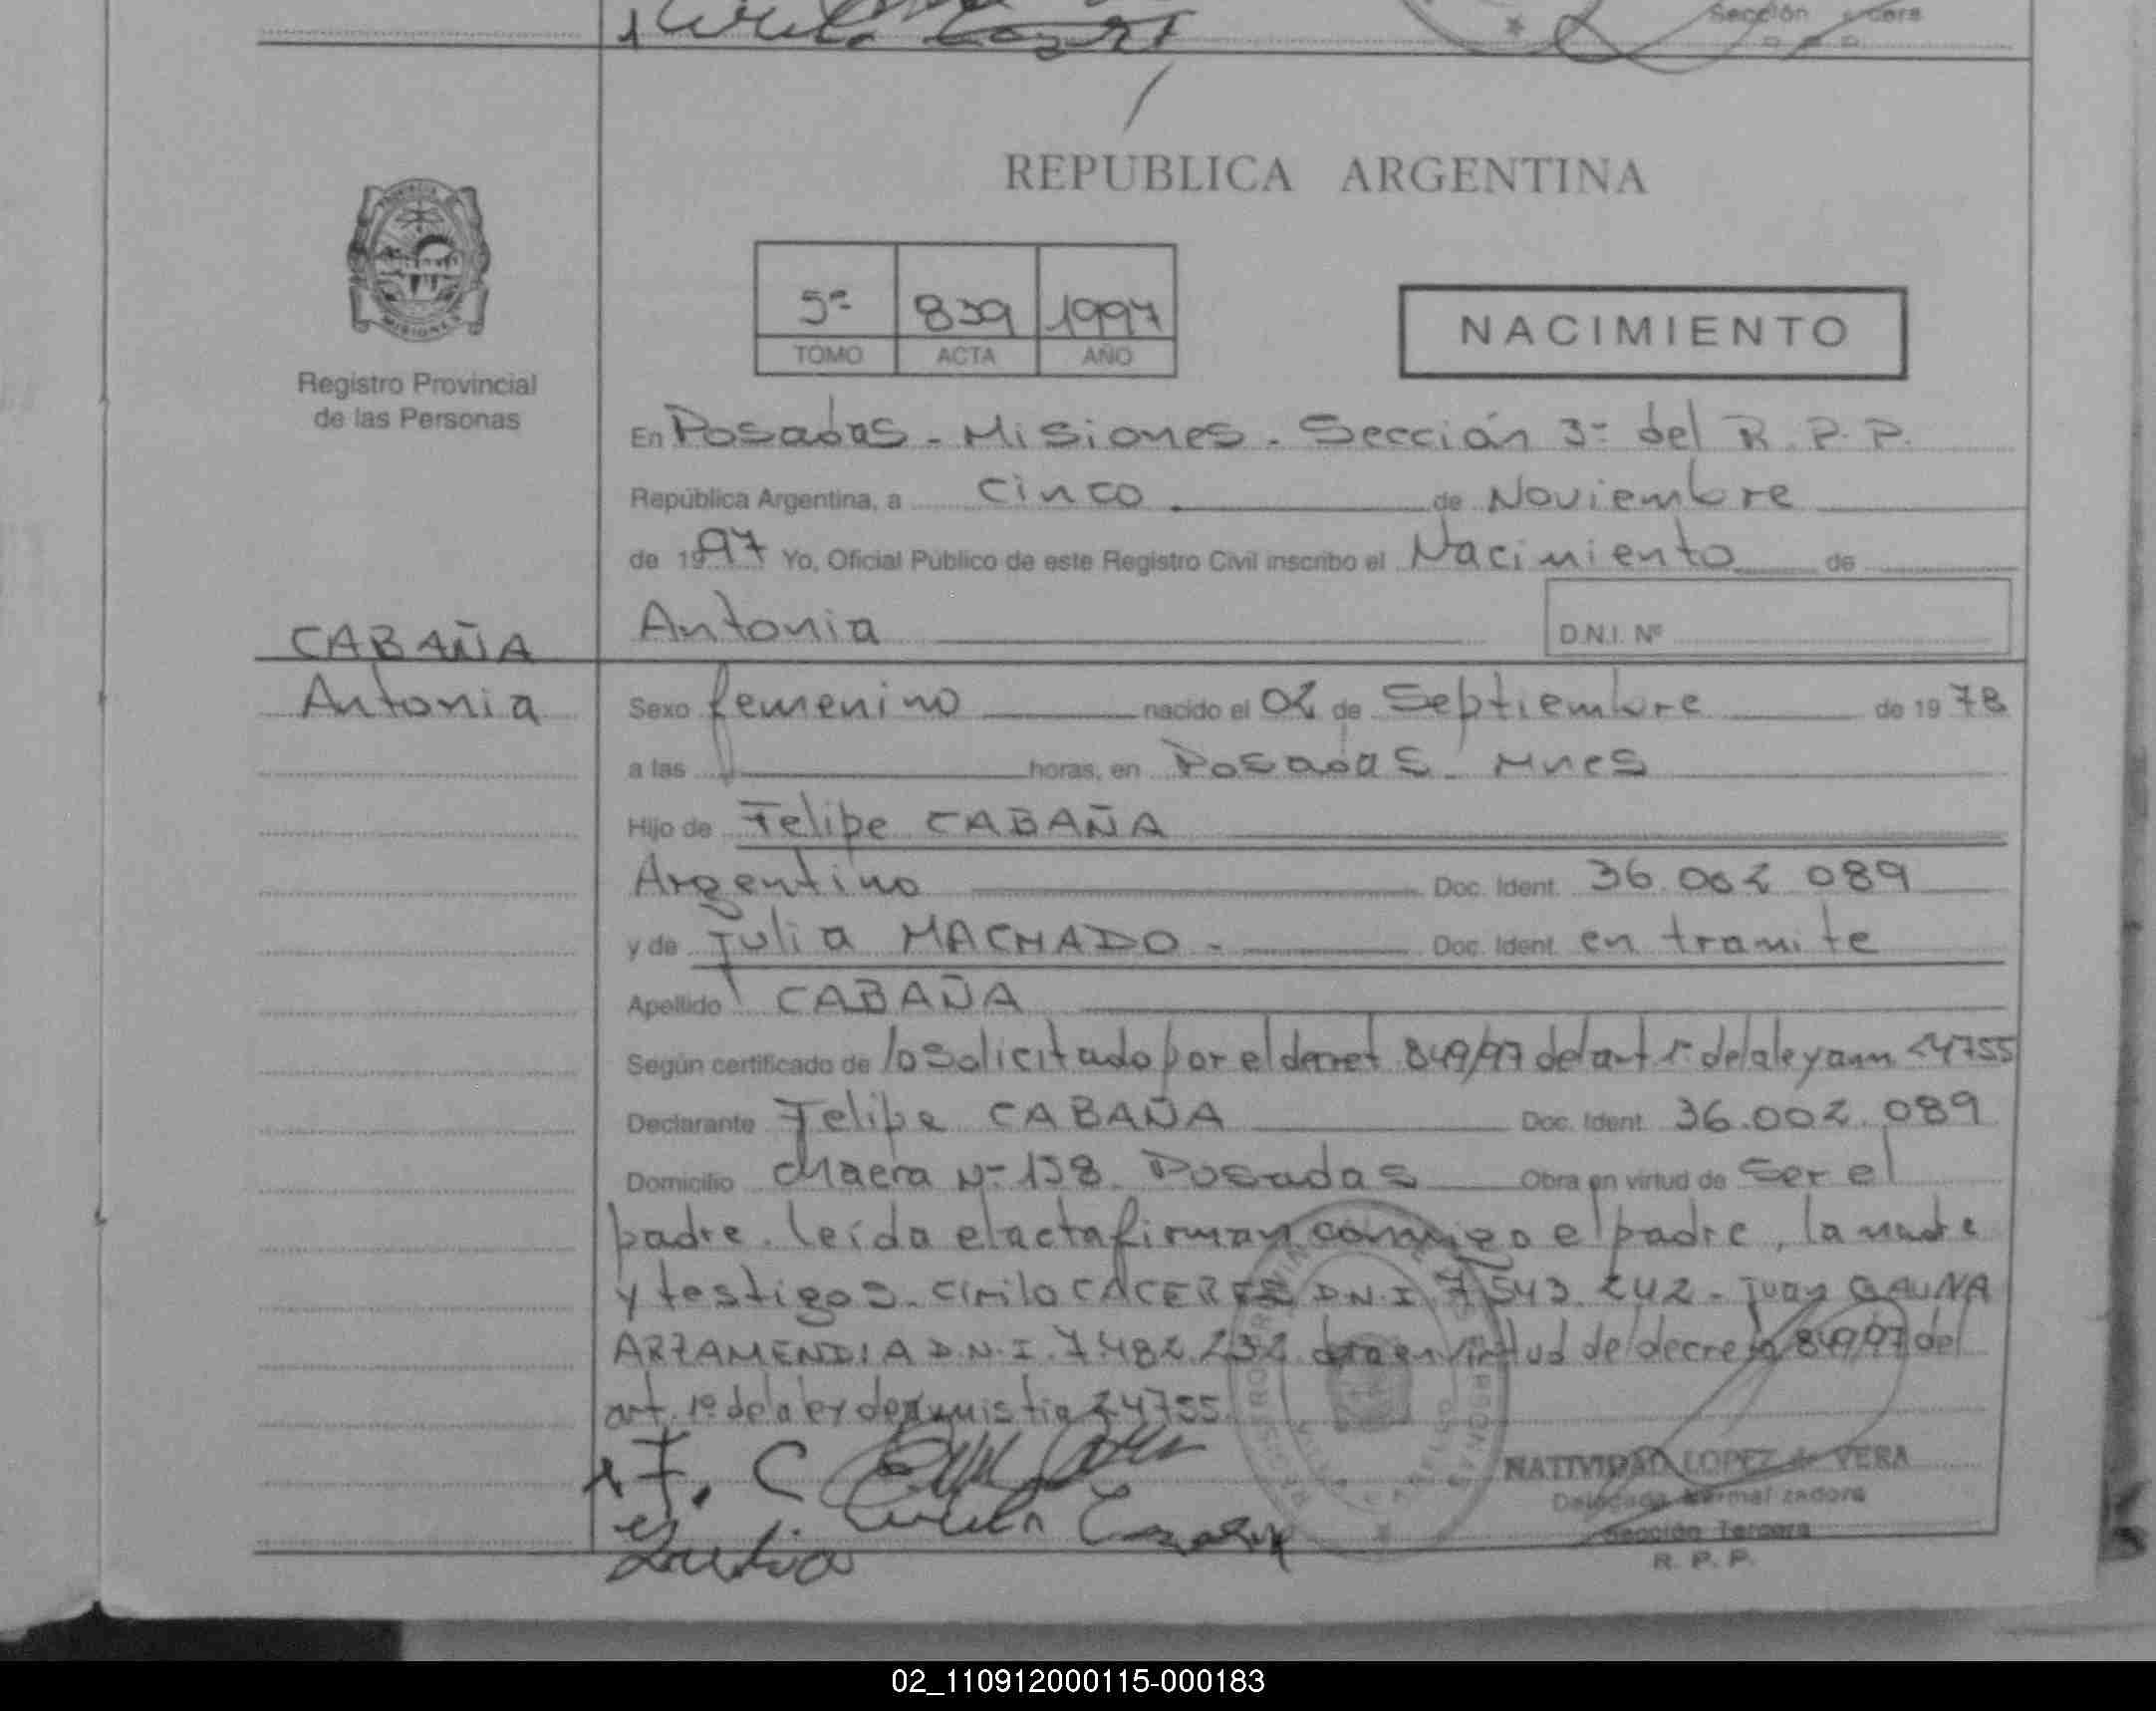 Sección
REPUBLICA ARGENTINA
PROVINCIA
MISIONES
5º 839 1997
TOMO ACTA AÑO
NACIMIENTO
Registro Provincial
de las Personas
En Posadas - Misiones - Sección 3º del R.P.P.
República Argentina, a cinco de Noviembre
de 1997 Yo, Oficial Público de este Registro Civil inscribo el Nacimiento de
CABAÑA
Antonia
Antonia D.N.I. Nº
Sexo femenino nacido el 02 de Septiembre de 1978
a las horas, en Posadas Mnes
Hijo de Felipe CABAÑA
Argentino Doc. Ident. 36.002 089
y de Julia MACHADO - Doc. Ident. en tramite
Apellido CABAÑA
Según certificado de lo Solicitado por el decret 849/97 del art 1º de la ley 24755
Declarante Felipe CABAÑA Doc. Ident. 36.002.089
Domicilio Chacra Nº 138 Posadas Obra en virtud de Ser el
padre. leída el acta firman conmigo el padre, la madre
y testigos. Cirilo CACERES D.N.I. 7543.242 - Juan GAUNA
ARZAMENDIA D.N.I. 7.482.232 obra en virtud del decreto 849/97 del
art. 1º de la ley de amnistia 24755
F. C
Julia
NATIVIDAD LOPEZ de VERA
Delegada Normalizadora
Sección Tercera
R. P. P.
02_110912000115-000183